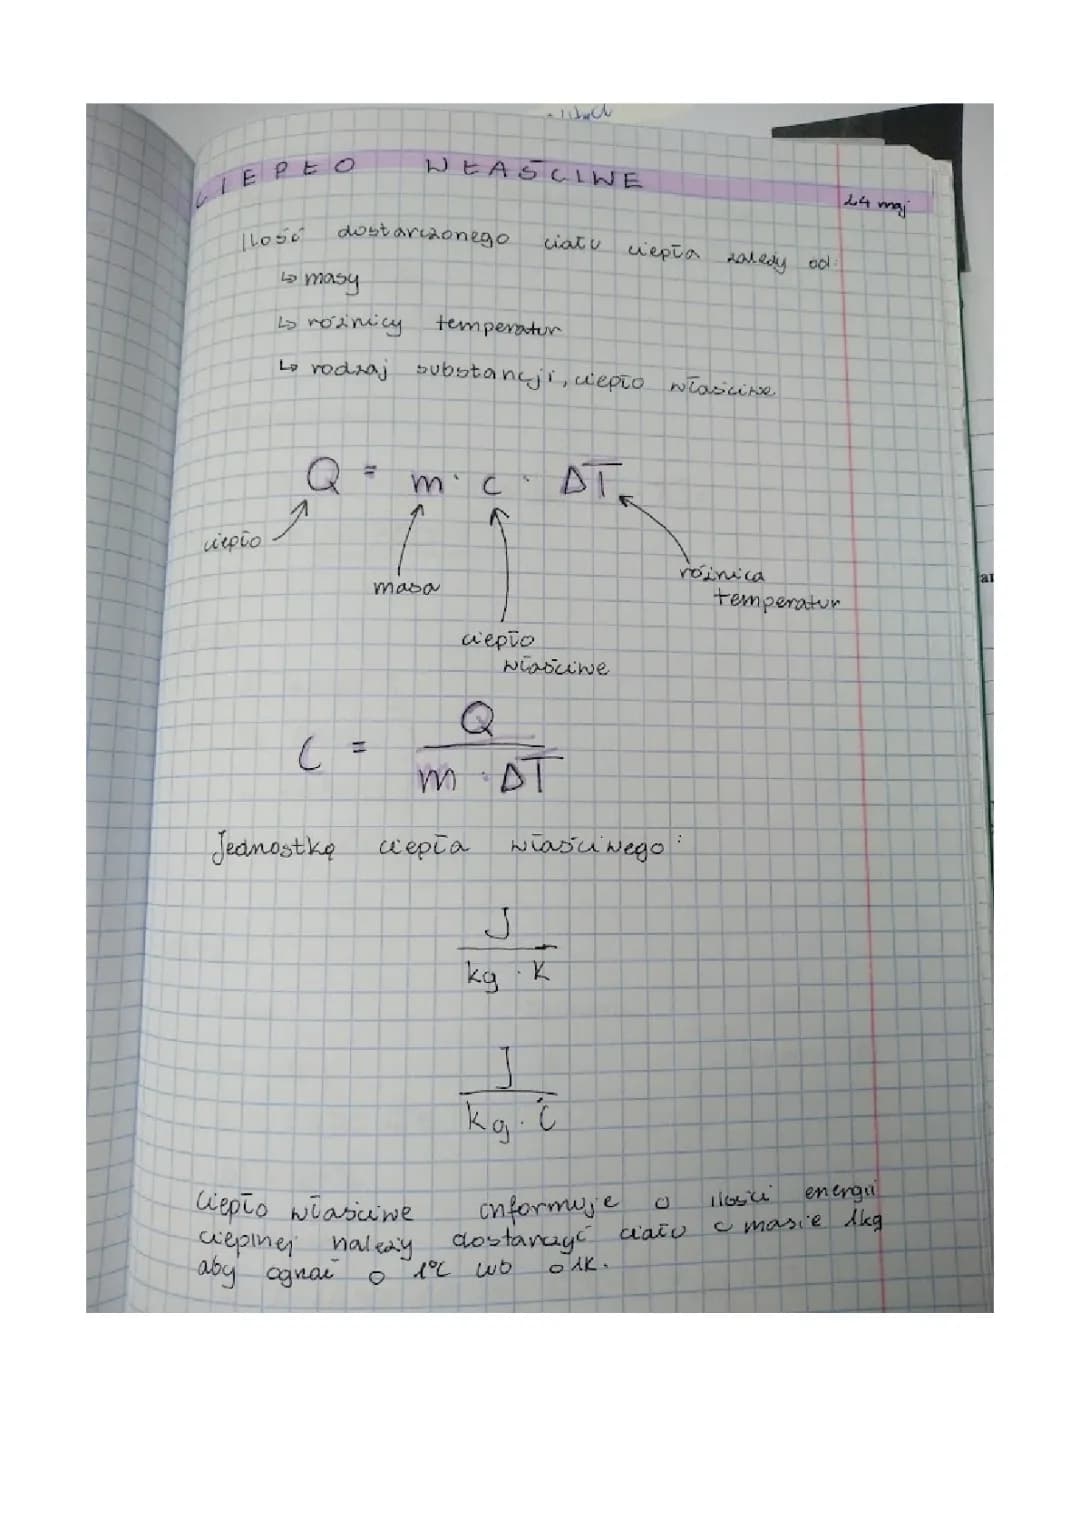 CIEPŁO WŁAŚCIWE
24 maj
Ilość dostarczonego ciału ciepła zależy od:
↳ masy
↳ różnicy temperatur
↳ rodzaj substancji, ciepło właściwe
Q = m · c · ΔT
ciepło
masa
różnica
temperatur
ciepło
właściwe
C = Q / m · ΔT
Jednostkę ciepła właściwego:
J
kg · K
J
kg · C
Ciepło właściwe informuje o ilości energii
cieplnej należy dostarczyć ciału o masie 1kg
aby ogrzać o 1°C lub o 1K.